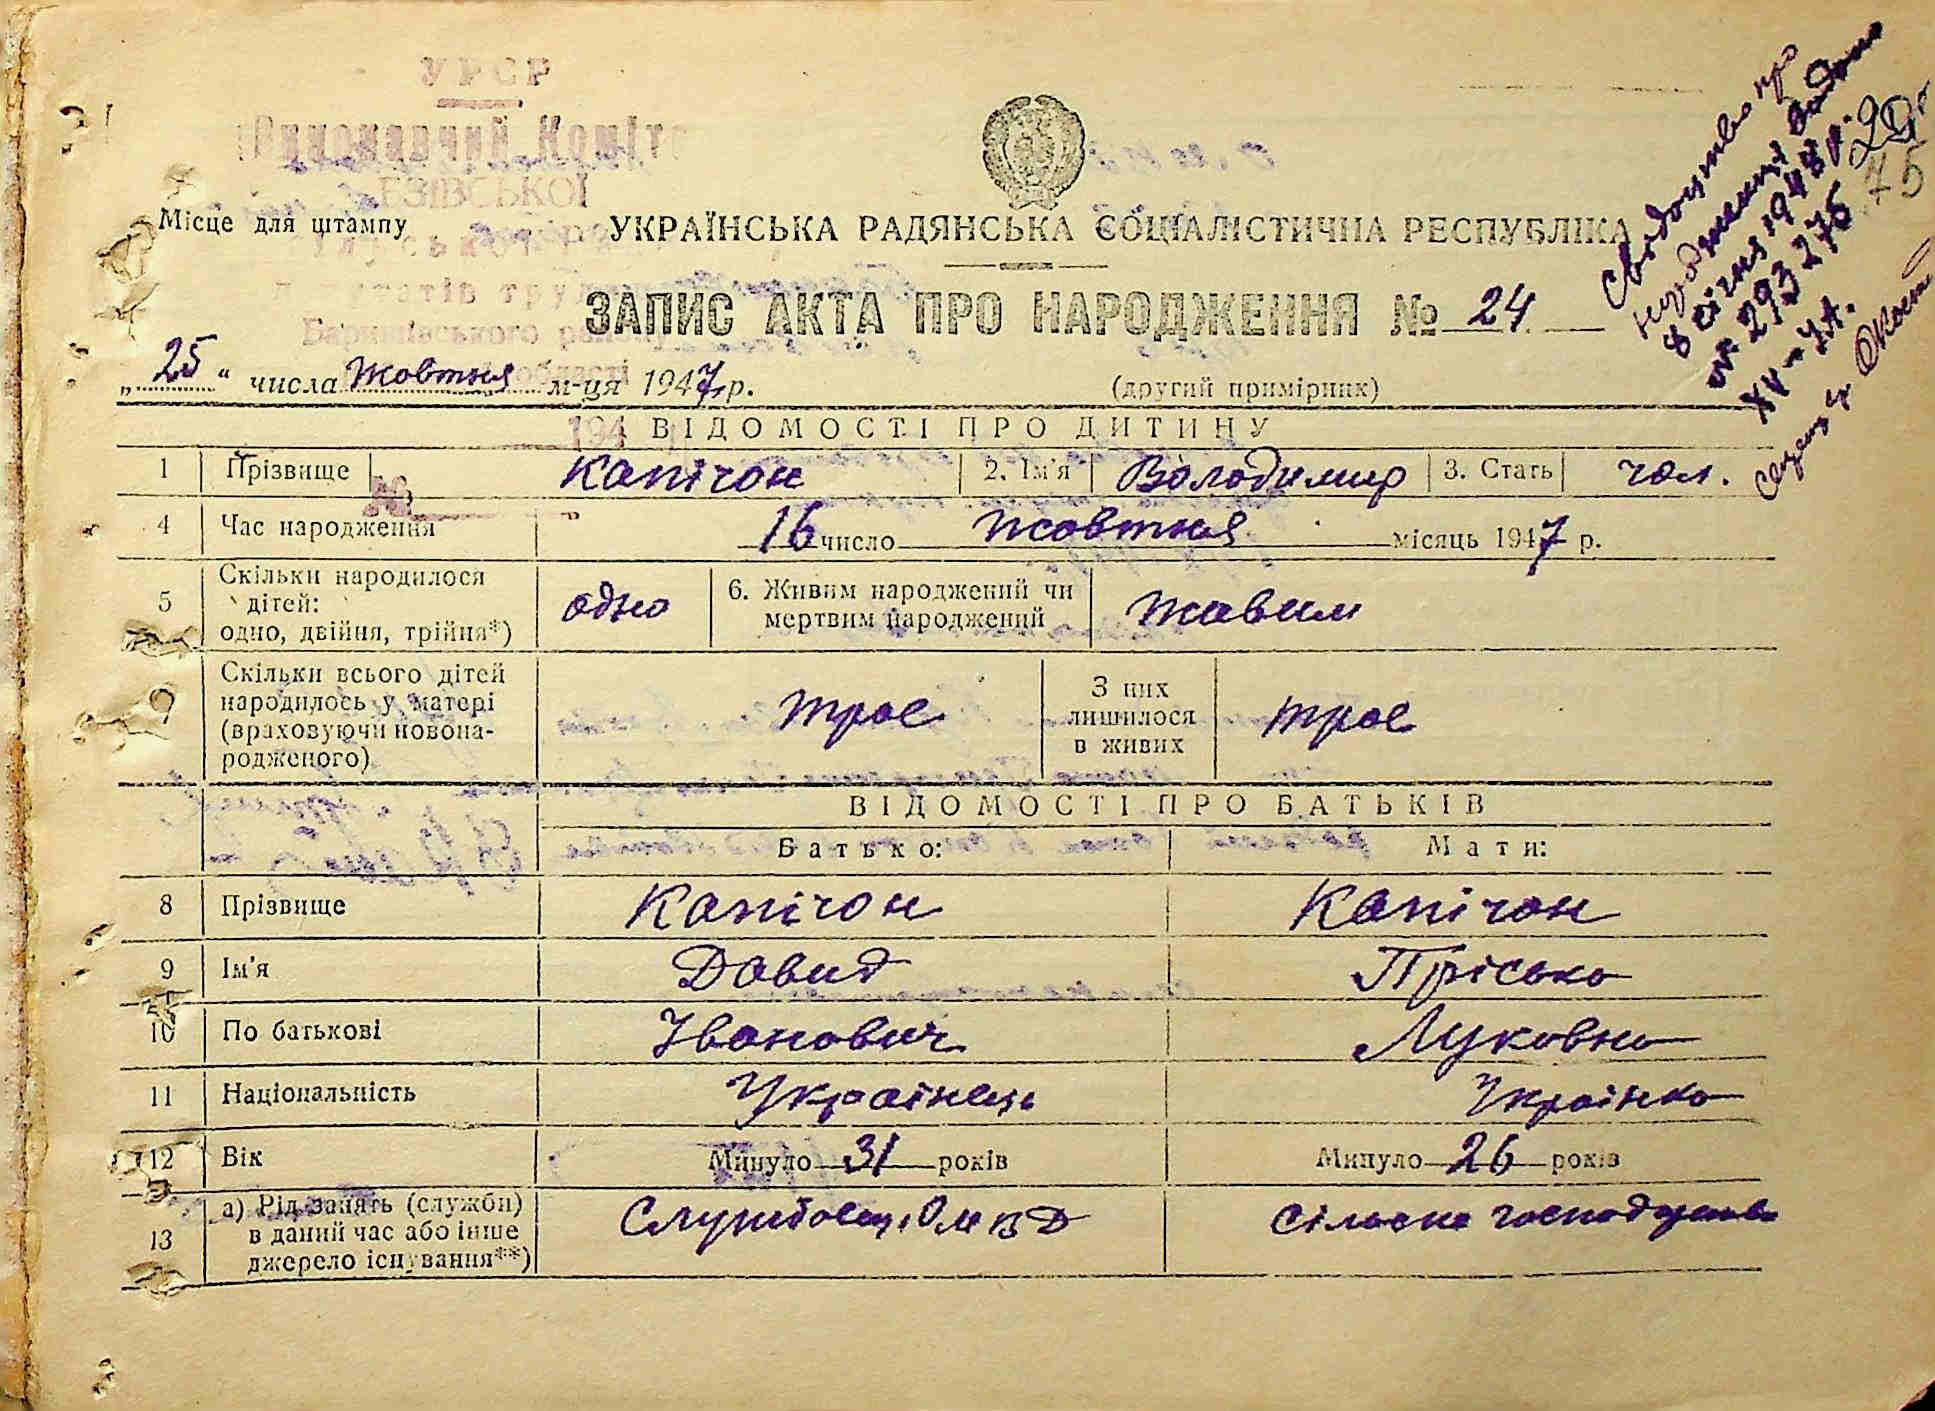 УРСР
Виконавчий Коміте
ЕЗІВСЬКОЇ
Місце для штампу
УКРАЇНСЬКА РАДЯНСЬКА СОЦІАЛІСТИЧНА РЕСПУБЛІКА
ЗАПИС АКТА ПРО НАРОДЖЕННЯ № 24
Баришівського району
області
„25“ числа Жовтня м-ця 1947 р.
(другий примірник)
194
ВІДОМОСТІ ПРО ДИТИНУ
1 Прізвище Капічон 2. Ім'я Володимир 3. Стать чол.
№
4 Час народження 16 число Жовтня місяць 1947 р.
5 Скільки народилося дітей: одно, двійня, трійня*) одно 6. Живим народжений чи мертвим народжений Живим
Скільки всього дітей народилось у матері (враховуючи новонародженого) троє З них лишилося в живих троє
ВІДОМОСТІ ПРО БАТЬКІВ
Батько: Мати:
8 Прізвище Капічон Капічон
9 Ім'я Давид Пріська
10 По батькові Іванович Луковна
11 Національність Українець Українка
12 Вік Минуло 31 років Минуло 26 років
13 а) Рід занять (служби) в даний час або інше джерело існування**) Службовец, ОМВД Сільське господарство
Свідоцтво про
народження видано
8 січня 1948 р.
№ 293275
XV-УА.
75